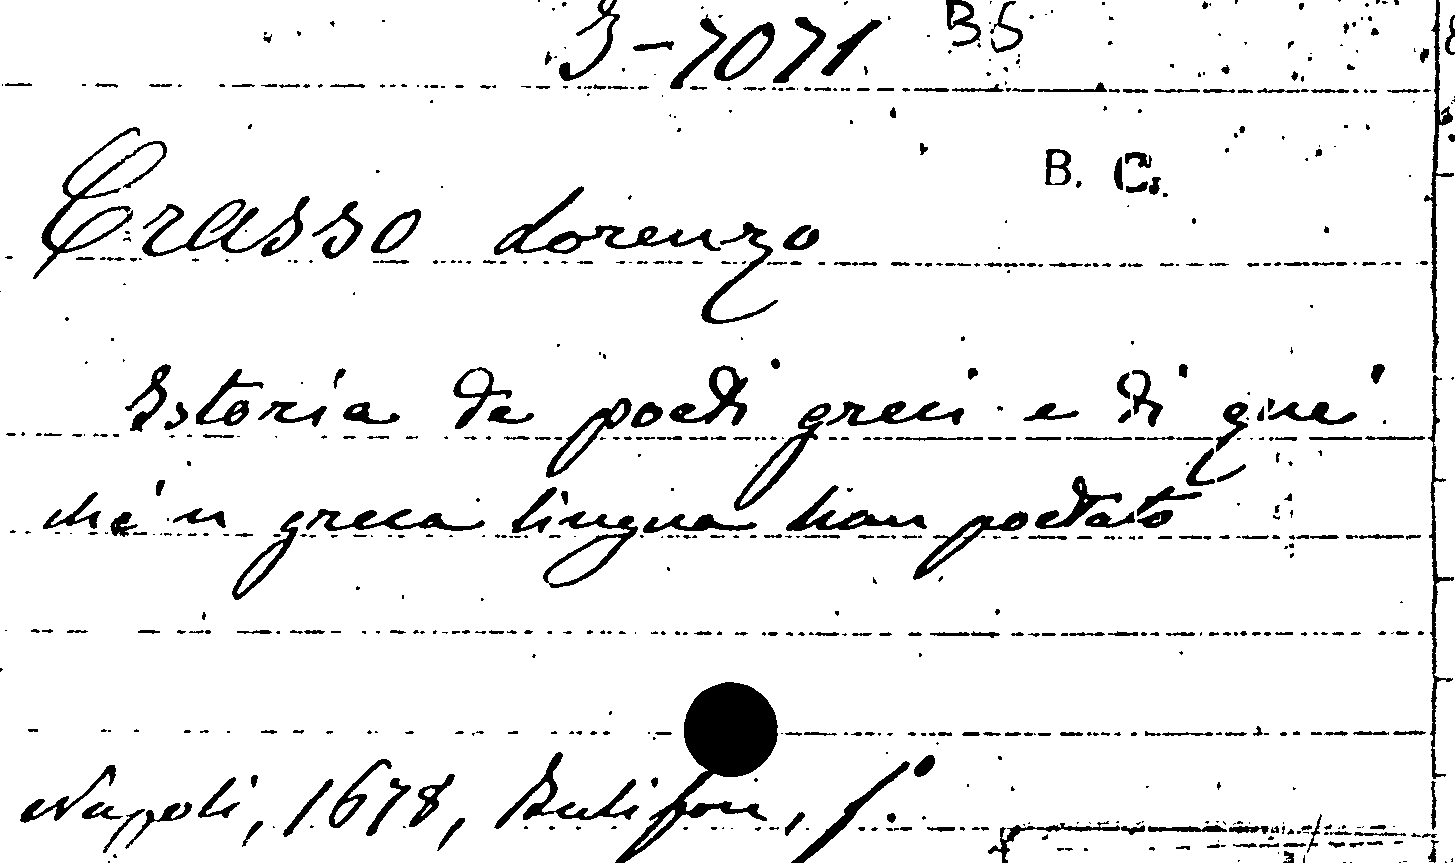 3-7071 B5
B. C.
Crasso Lorenzo
Istoria de poeti greci e di que'
che'n greca lingua han poetato
Napoli, 1678, Bulifon, f.º